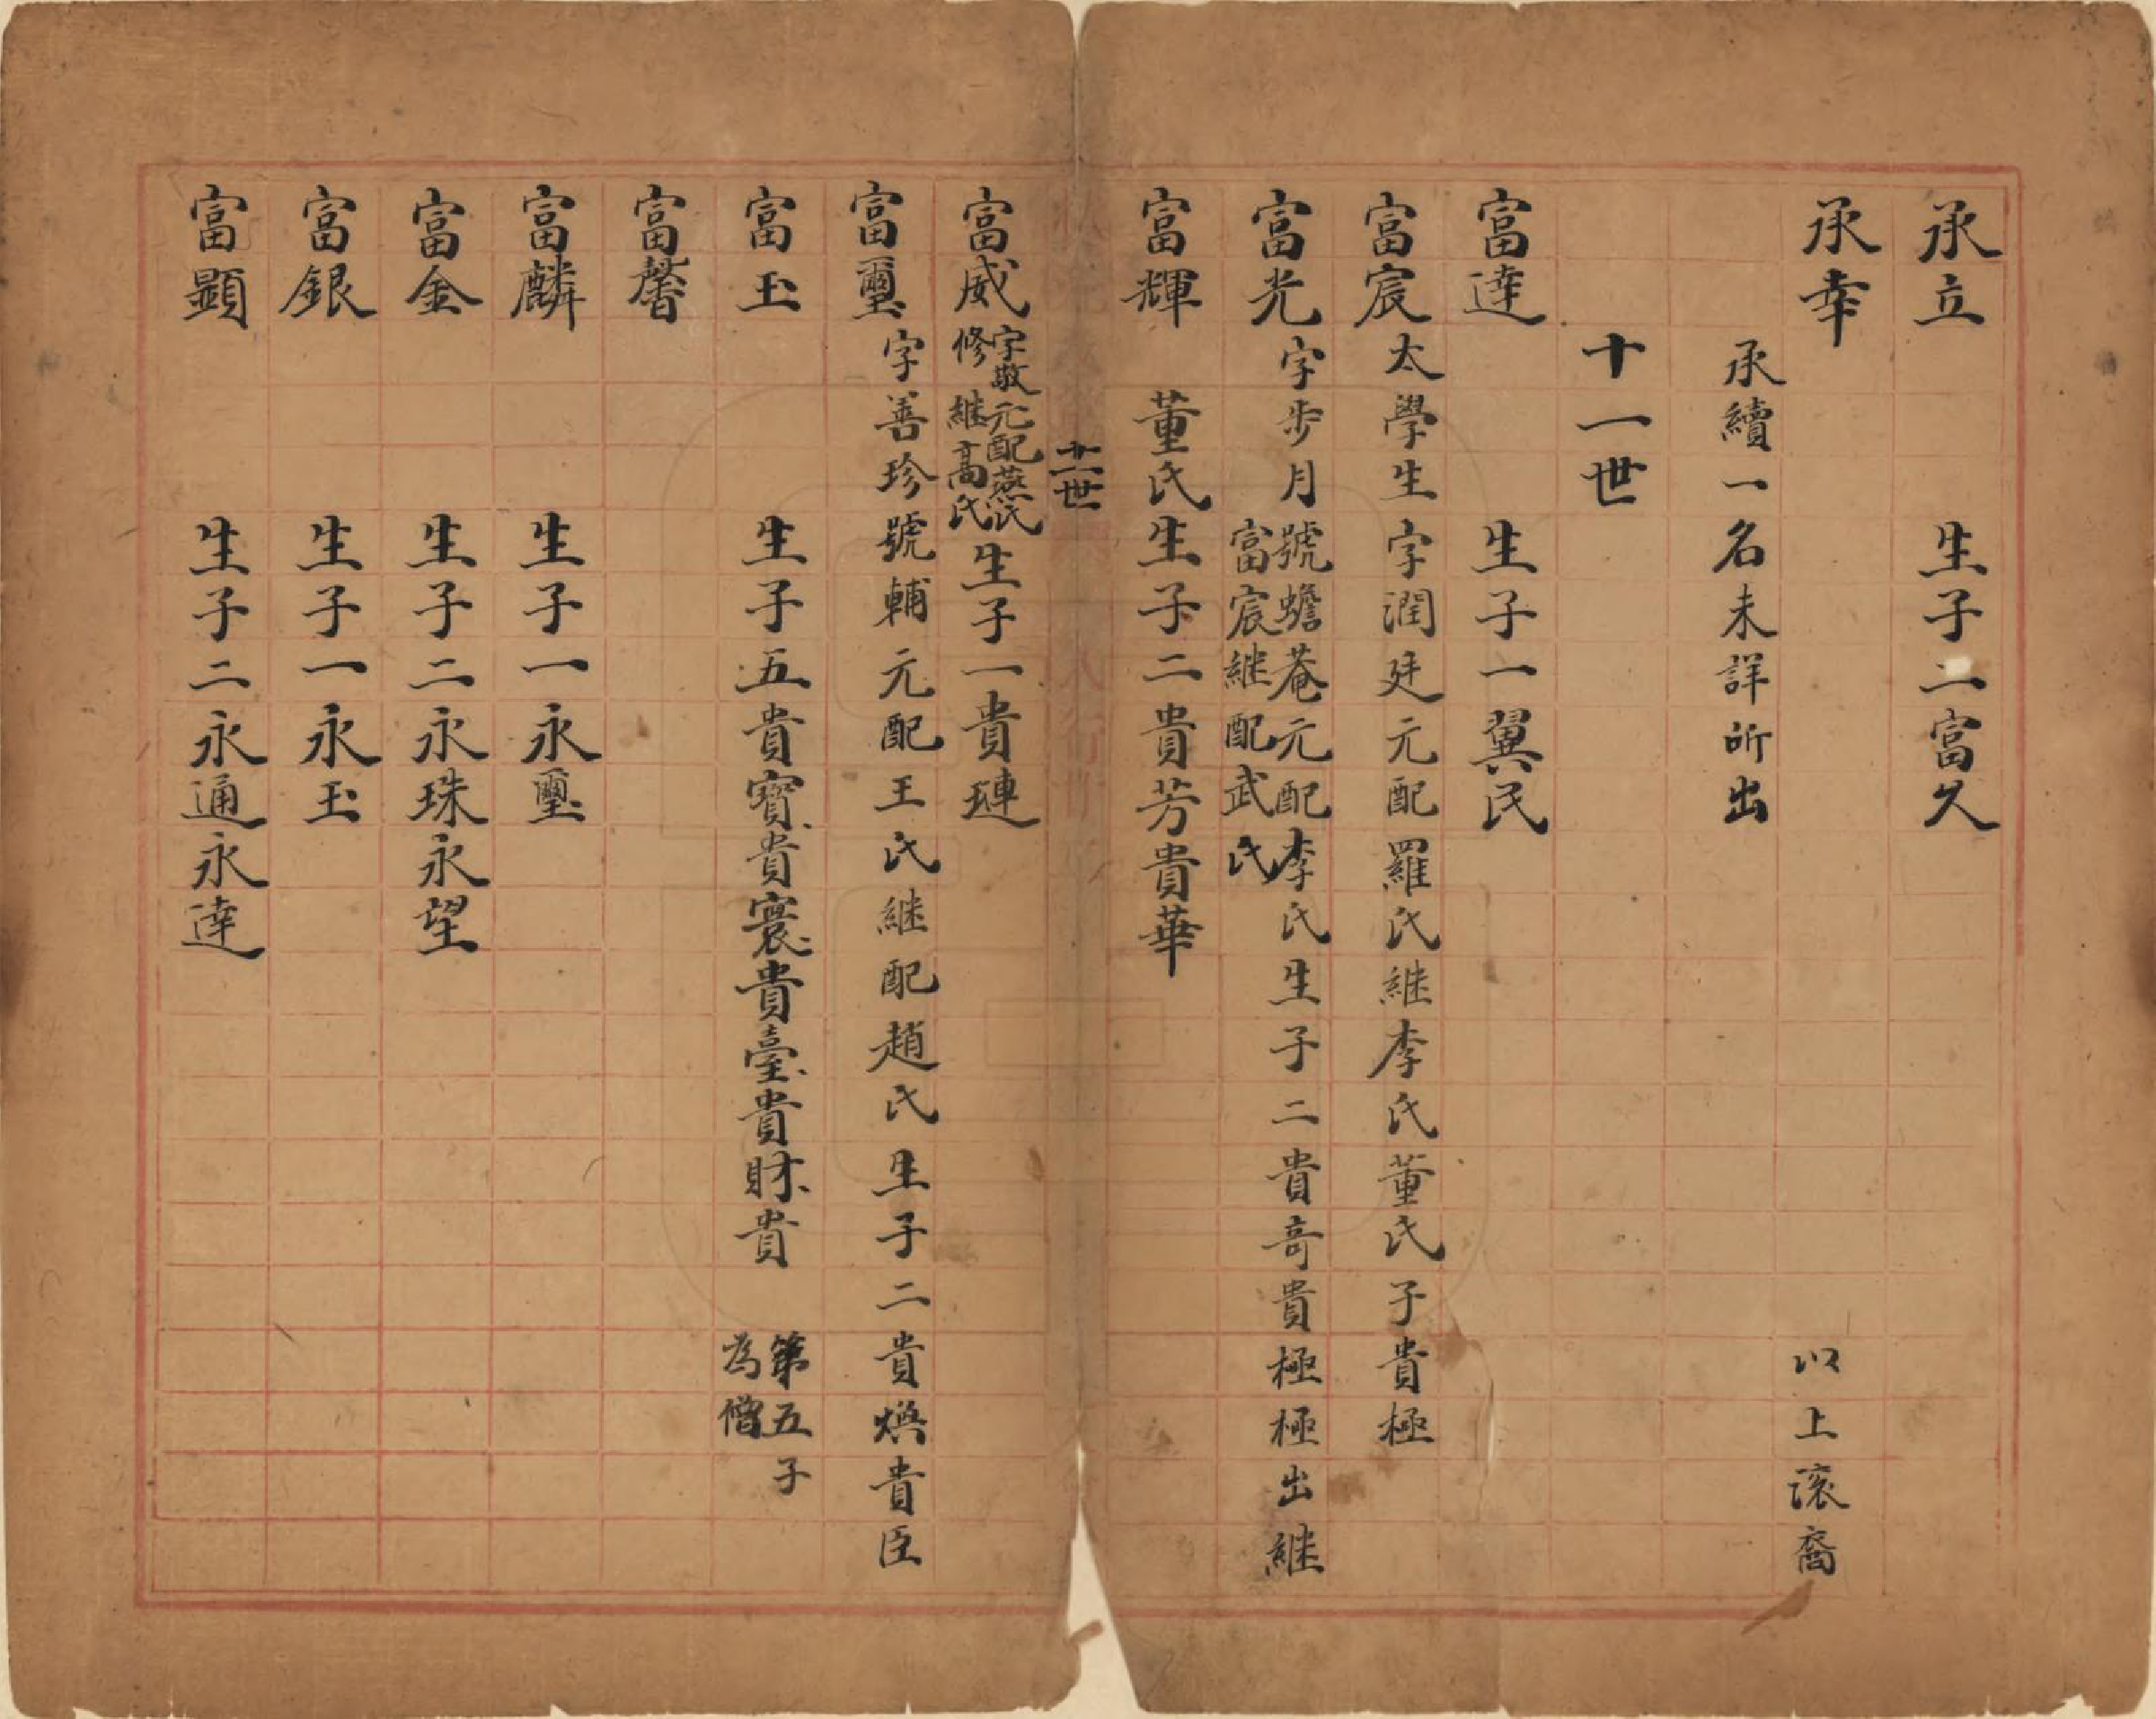 承立 生子二富久
承幸 以上滚裔
承續一名未詳所出
十一世
富達 生子一翼民
富宸 太學生字潤廷元配羅氏繼李氏董氏子貴極
富光 字步月號蟾菴元配李氏生子二貴奇貴極極出継
富宸継配武氏
富輝 董氏生子二貴芳貴華
十一世
富威 字敬修 元配燕氏継高氏 生子一貴璉
富璽 字善珍號輔元配王氏継配趙氏生子二貴燠貴臣
富玉 生子五貴寶貴寰貴臺貴財貴 第五子為僧
富馨
富麟 生子一永璽
富金 生子二永珠永望
富銀 生子一永玉
富顯 生子二永通永達